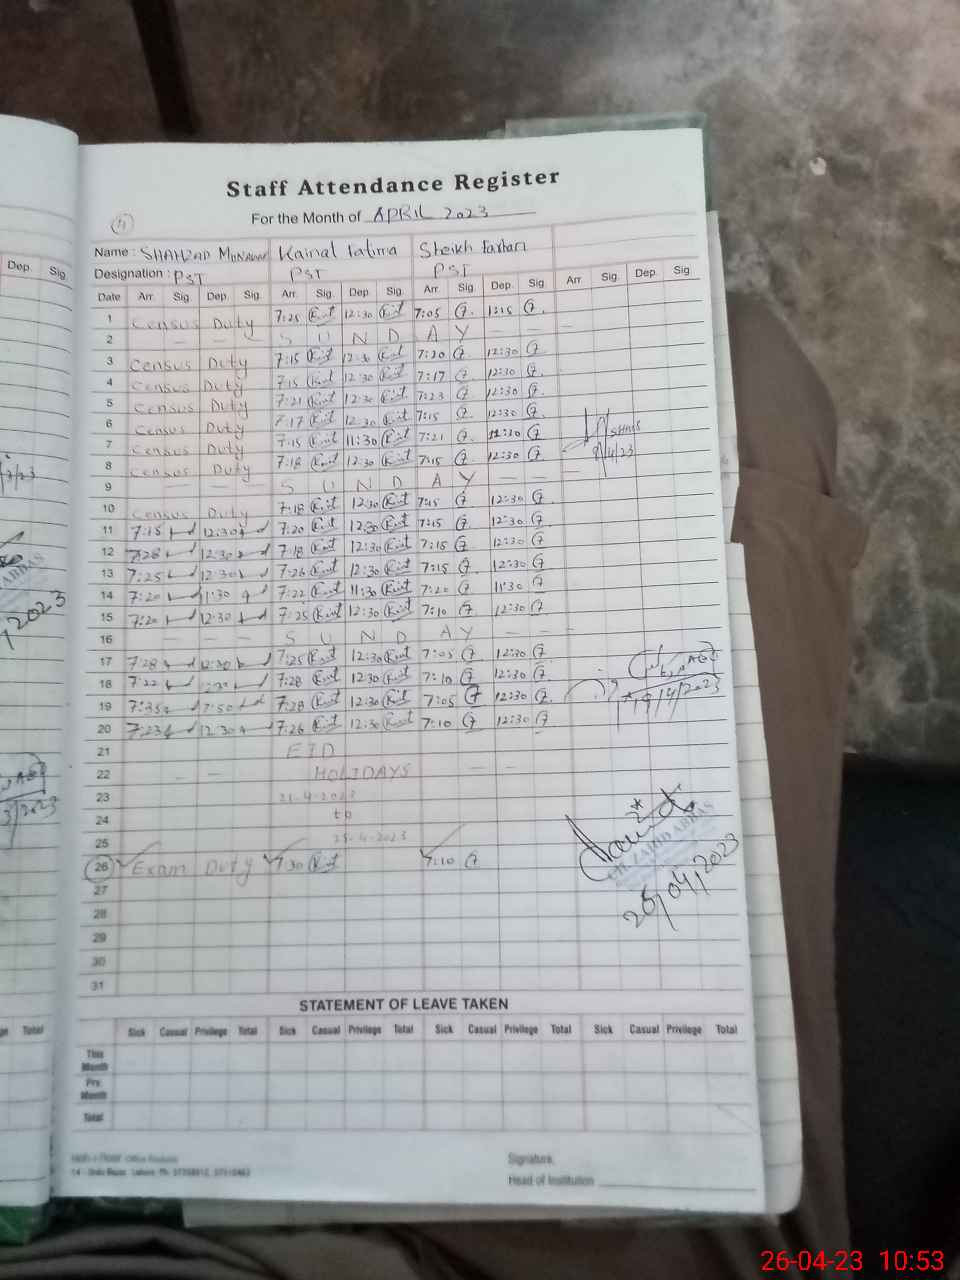 Staff Attendance Register
For the Month of APRIL 2023
4
Name : SHAHZAD MUNAWAR Kainat Fatima Sheikh Farhan
Designation : PST PST PST
Date Arr. Sig. Dep. Sig. Arr. Sig. Dep. Sig. Arr. Sig. Dep. Sig. Arr. Sig. Dep. Sig
1 Census Duty 7:25 12:30 7:05
2 — — — S U N D A Y — — —
3 Census Duty 7:15 12:30 7:20 12:30
4 Census Duty 7:15 12:30 7:17 12:30
5 Census Duty 7:21 12:30 7:23 12:30
6 Census Duty 7:17 12:30 7:15 12:30
7 Census Duty 7:15 11:30 7:21
8 Census Duty 7:18 12:30 7:15 12:30
9 — — — S U N D A Y — — —
10 Census Duty 7:18 12:30 7:15 12:30
11 7:15 12:30 7:20 12:30 7:15 12:30
12 7:28 12:30 7:18 12:30 7:15 12:30
13 7:25 12:30 7:26 12:30 7:15 12:30
14 7:20 11:30 7:22 11:30 7:20 11:30
15 7:20 12:30 7:25 12:30 7:10 12:30
16 — — — S U N D A Y — — —
17 7:28 12:30 7:25 12:30 7:05 12:30
18 7:22 7:28 12:30 7:10 12:30
19 7:35 7:28 12:30 7:05 12:30
20 7:23 12:30 7:26 12:30 7:10 12:30
21 EID
22 — — HOLIDAYS — —
23 21-4-2023
24 to
25 25-4-2023
26 Exam Duty 7:30 7:10
27
28
29
30
31
8/4/23
19/4/2023
CH. ZAHID ABBAS
26/04/2023
STATEMENT OF LEAVE TAKEN
Sick Casual Privilege Total Sick Casual Privilege Total Sick Casual Privilege Total Sick Casual Privilege Total
This Month
Prv. Month
Total
Signature
Head of Institution
Dep. Sig.
Total
26-04-23 10:53